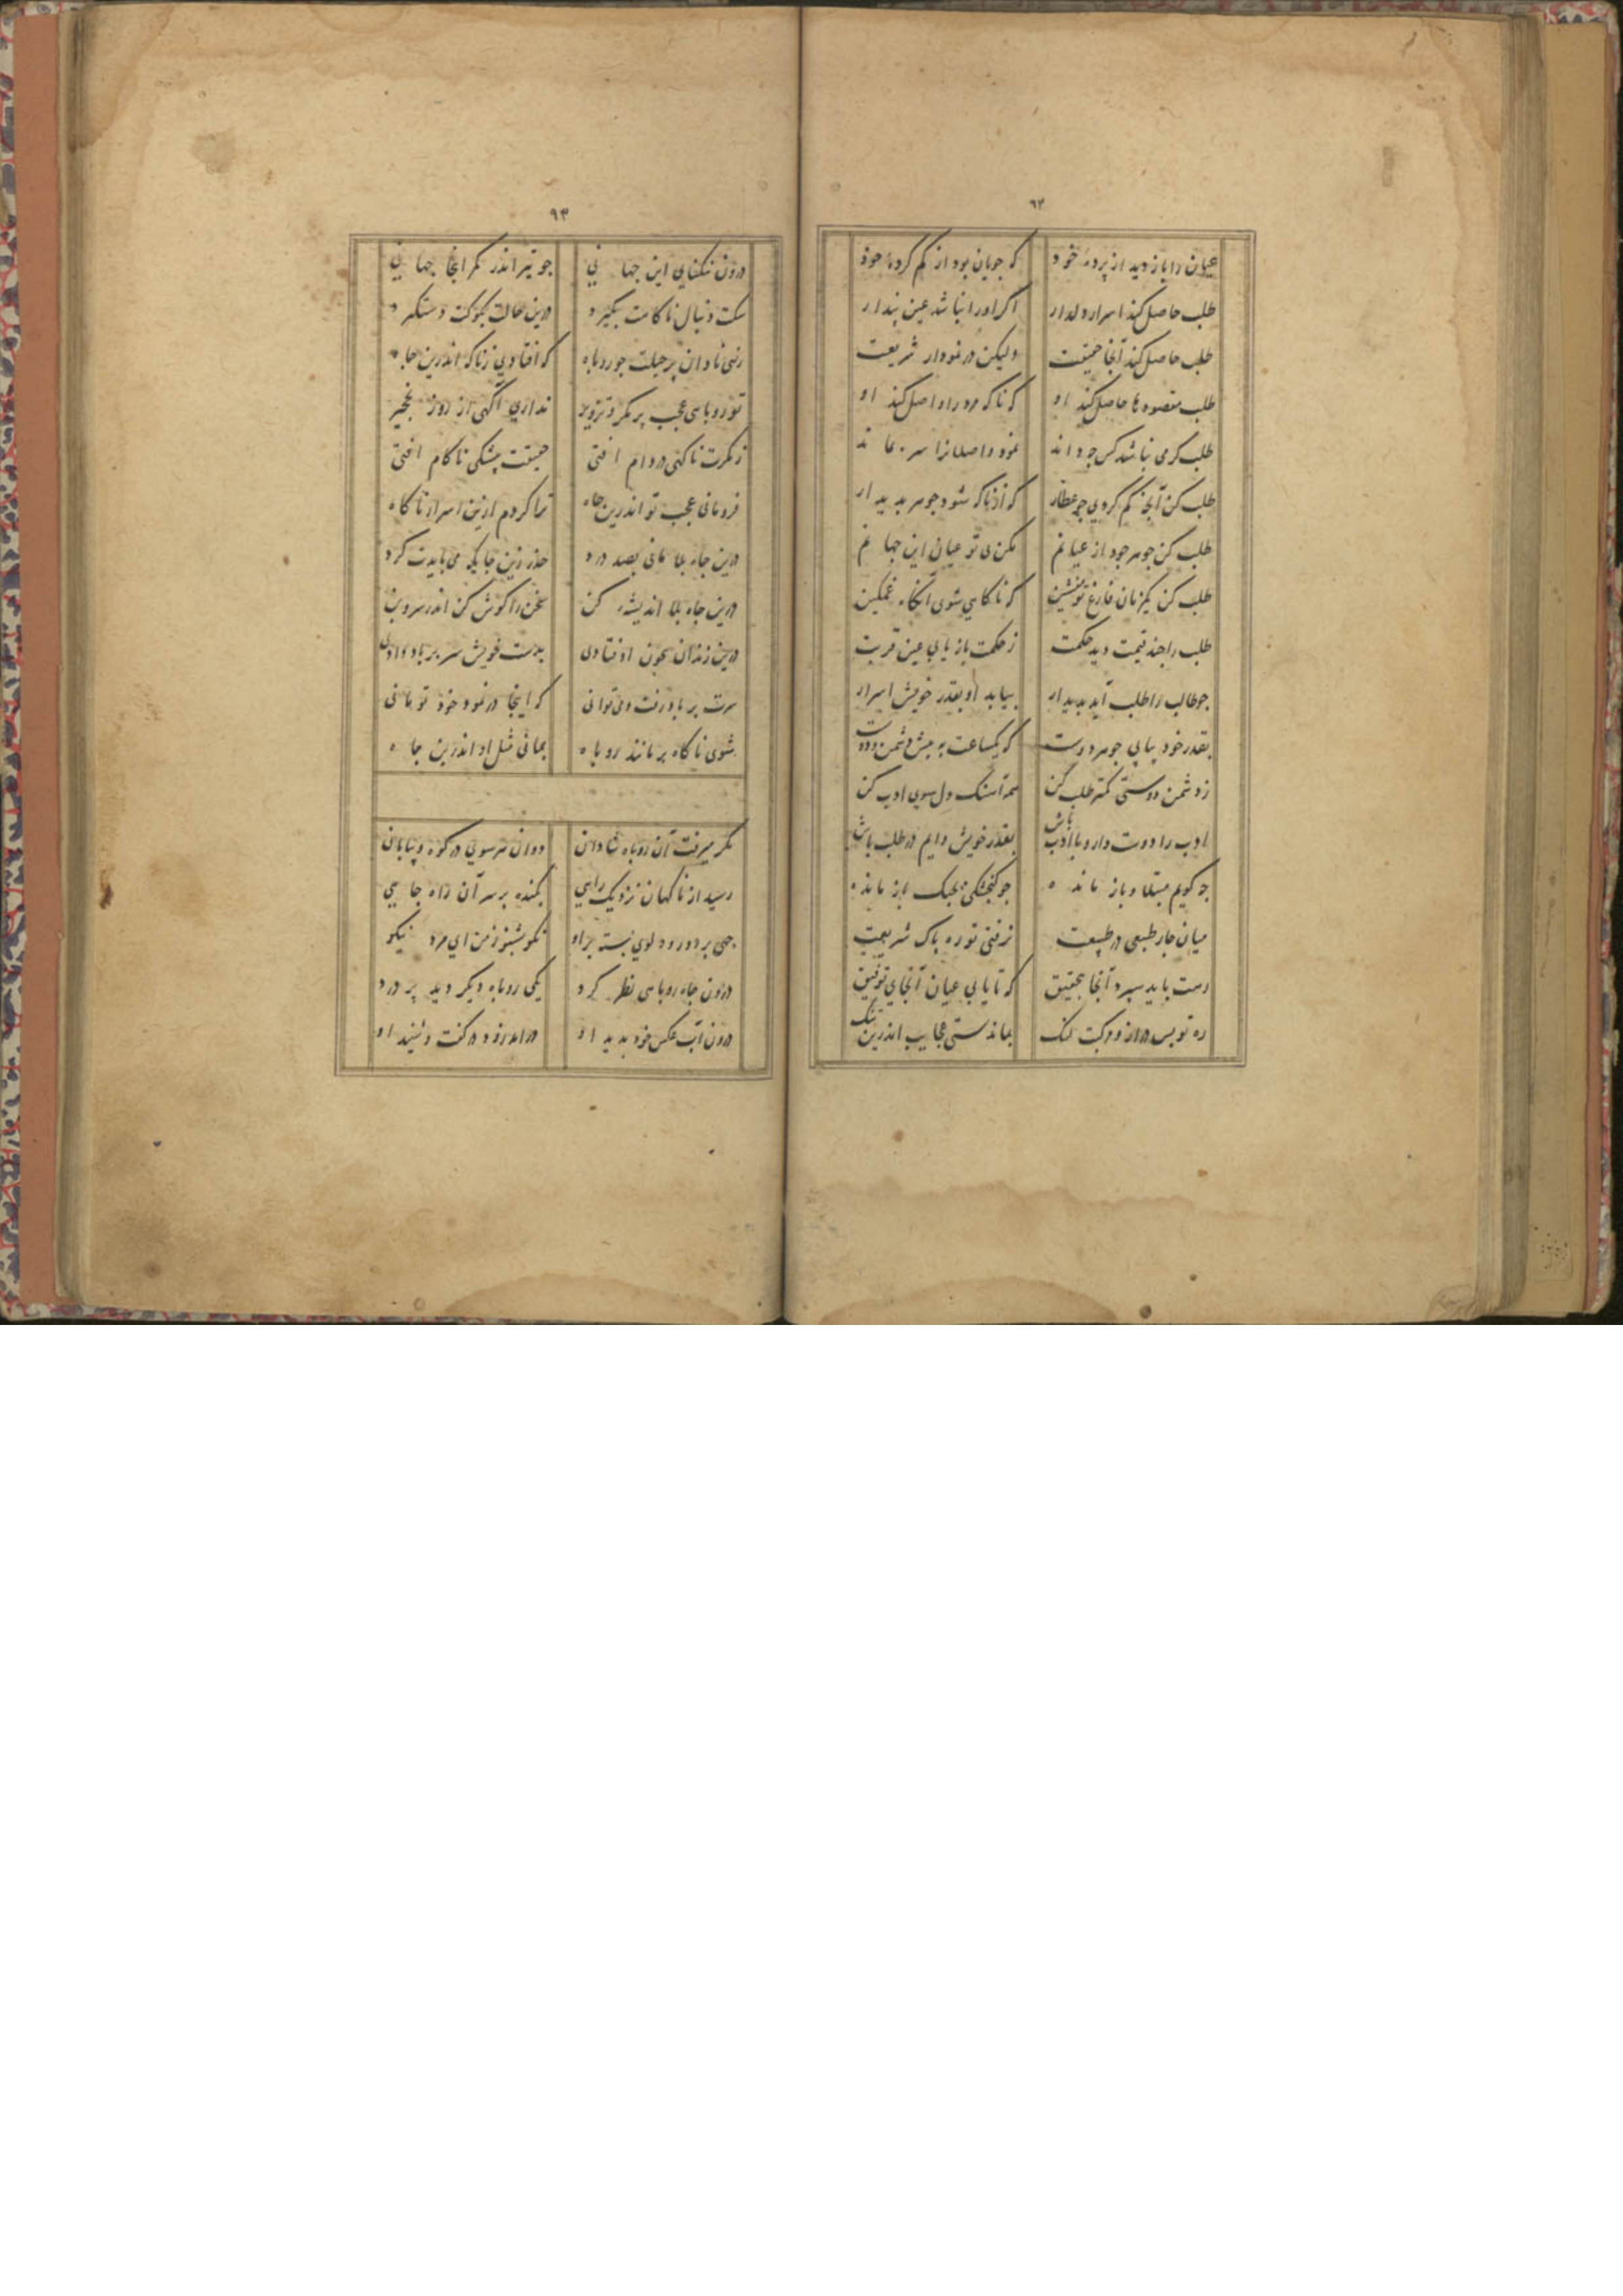 ٩٢
عیان را باز دید از پرده خود که جویان بود از کم کرده خود
طلب حاصل کند اسرار دلدار اگر او را نباشد عین پندار
طلب حاصل کند آنجا حقیقت ولیکن در نمودار شریعت
طلب مقصودها حاصل کند او که ناکه مرد را واصل کند او
طلب کر می نباشد کس چه داند نمود واصلانرا
طلب کن آنچه کم کردی چو عطار که از ناکه شود جوهر بدیدار
طلب کن جوهر خود از عیانم مکن بی تو عیان این جهانم
طلب کن یکزمان فارغ تو منشین که ناکاهی شوی آنکاه غمکین
طلب را چند قیمت دید حکمت ز حکمت باز یابی عین قربت
جو طالب را طلب آید بدیدار بیابد او بقدر خویش اسرار
بقدر خود بیابی جوهر دوست که یکساعت به پیش دشمن و دوست
ز دشمن دوستی کمتر طلب کن همه آهنک دل سوی ادب کن
ادب را دوست دار و با ادب باش بقدر خویش دایم در طلب باش
چه کویم مبتلا و باز مانده جو کنجشکی بچنک باز مانده
میان چار طبعی در طبیعت نرفتی تو ره پاک شریعت
رهت باید سپرد آنجا بتحقیق که تا یابی عیان آنجای توفیق
ره تو بس دراز و مرکبت لنک بماندستی عجایب اندرین تنک
٩٣
درون تنکنای این جهانی جو تیر اندر کمر اینجا جهانی
سکت دنبال ناکاهت بکیرد درین حالت بکو کت دستکیرد
زهی نادان پر حیلت جو روباه که افتادی ز ناکه اندرین چاه
تو روباهی عجب پر مکر و تزویر نداری آکهی از روز نخجیر
ز مکرت ناکهی در دام افتی حقیقت بیشکی ناکام افتی
فرومانی عجب تو اندرین چاه ترا کردم ازین اسرار آکاه
درین چاه بلا مانی بصد درد حذر زین جایکه می بایدت کرد
درین چاه بلا اندیشه کن سخن را کوش کن اندر سر و بن
درین زندان بچون افتادی بدست خویش سر بر باد دادی
سرت بر باد رفت و می توانی که اینجا در نمود خود تو مانی
شوی ناکاه بر مانند روباه بمانی مثل او اندرین چاه
مکر میرفت آن روباه شادان دوان هر سوی در کوه و بیابان
رسید از ناکهان نزدیک راهی بکنده بر سر آن راه چاهی
چهی بر دور و دلوی بسته بر او نکو بشنو ز من ای مرد نیکو
درون چاه روباهی نظر کرد یکی روباه دیکر دید پر درد
درون آب عکس خود بدید او در اندر زود و در کفت و شنید او